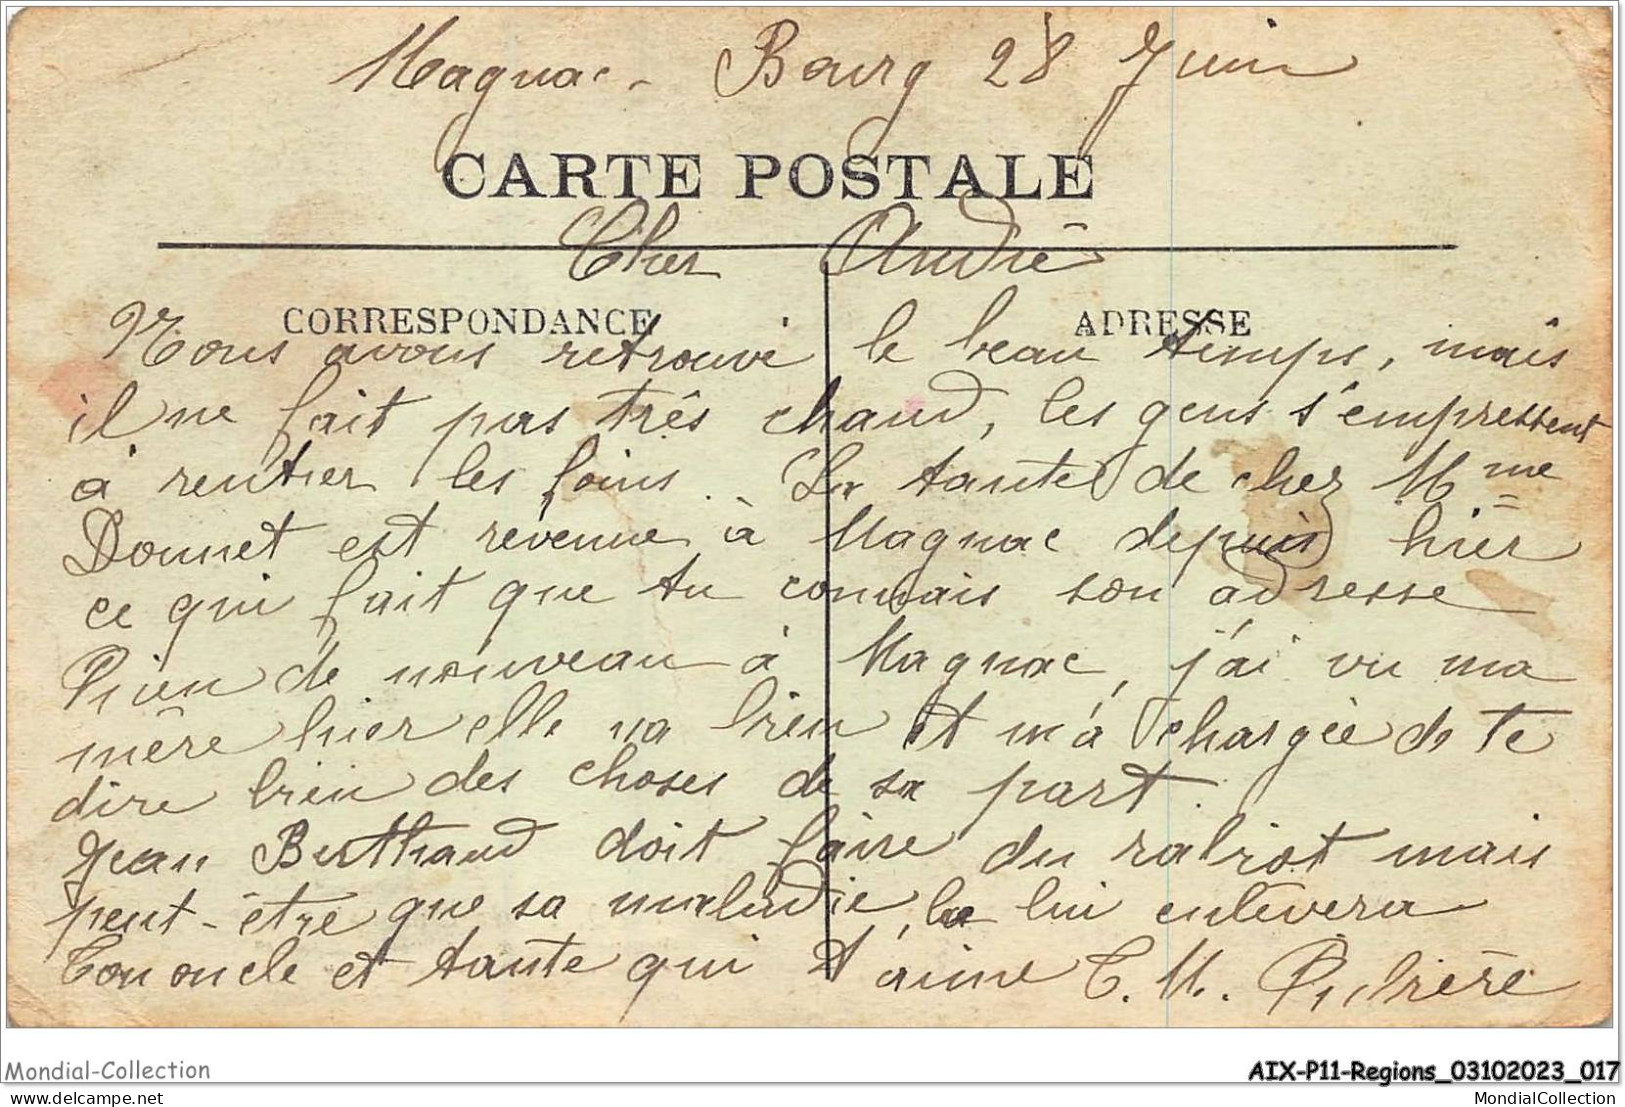 Magnac-Bourg 28 Juin
CARTE POSTALE
Cher André
CORRESPONDANCE ADRESSE
Nous avons retrouvé le beau temps, mais
il ne fait pas très chaud, les gens s'empressent
à rentrer les foins. La tante de chez Mme
Donnet est revenue à Magnac depuis hier
ce qui fait que tu connais son adresse
Rien de nouveau à Magnac, j'ai vu ma
mère hier elle va bien et m'a chargée de te
dire bien des choses de sa part.
Jean Berthaud doit faire du rabiot mais
peut-être que sa maladie, le lui enlèvera
Ton oncle et tante qui t'aime C. M.
Mondial-Collection
AIX-P11-Regions_03102023_017
delcampe.net
MondialCollection